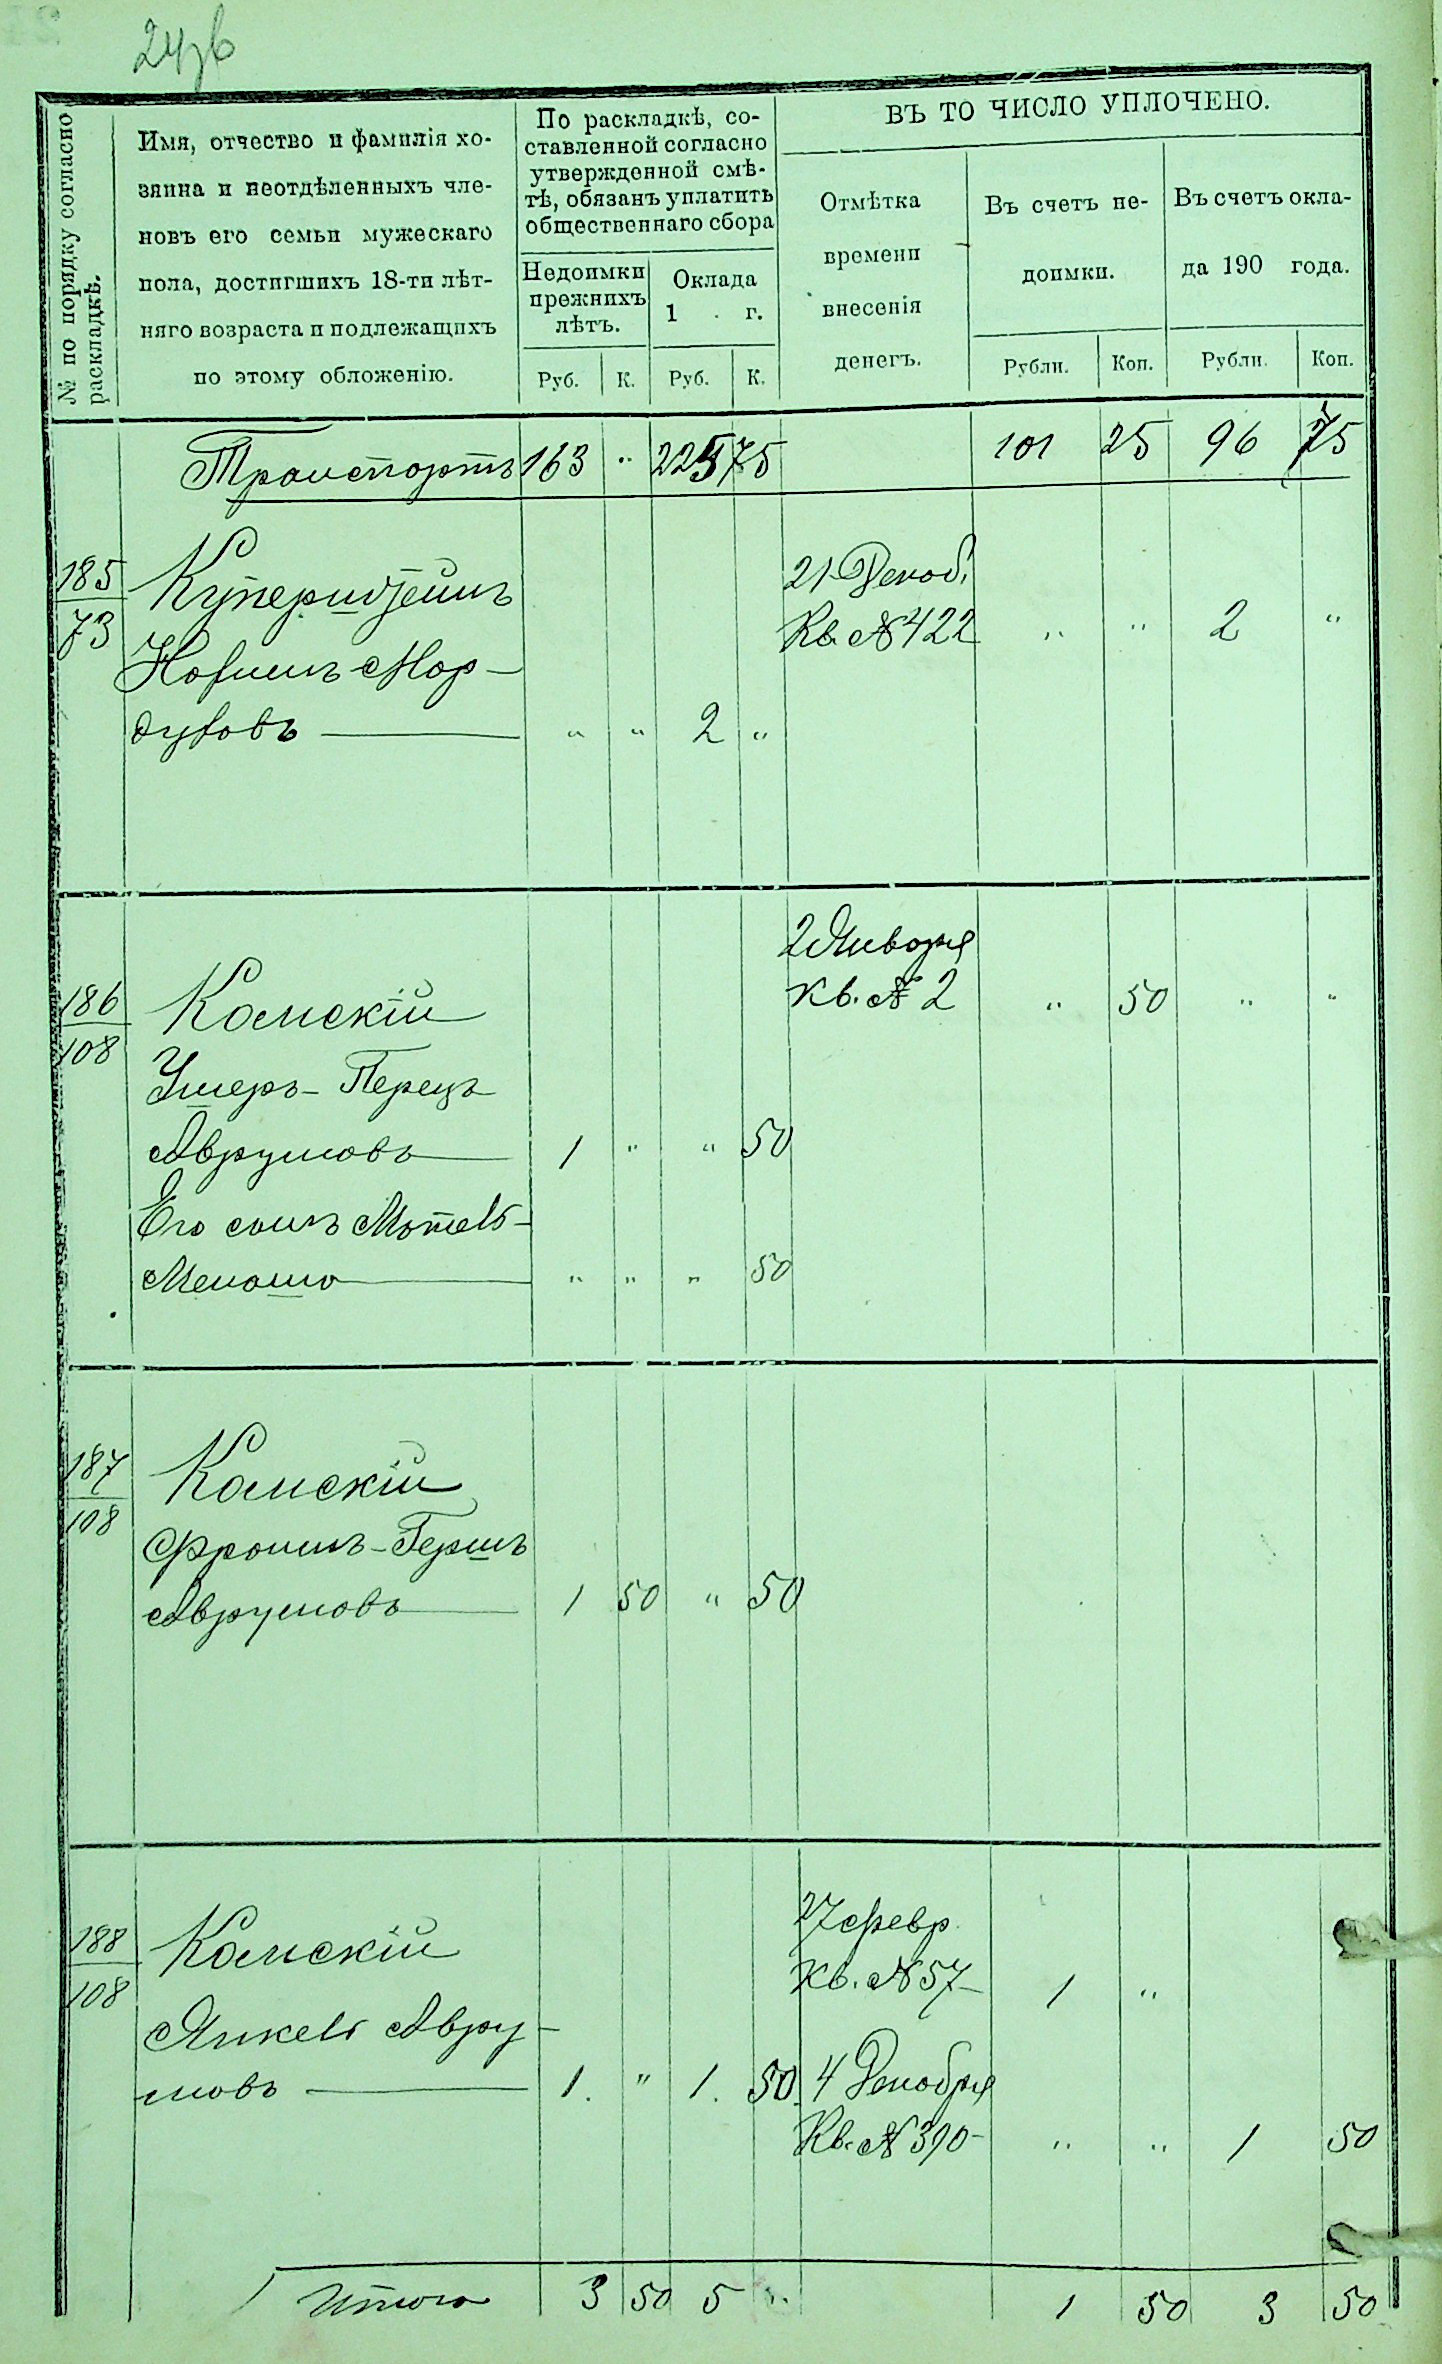 24об
№ по порядку согласно раскладкѣ.
Имя, отчество и фамилія хо-
зяина и неотдѣленныхъ чле-
новъ его семьи мужескаго
пола, достигшихъ 18-ти лѣт-
няго возраста и подлежащихъ
по этому обложенію.
По раскладкѣ, со-
ставленной согласно
утвержденной смѣ-
тѣ, обязанъ уплатить
общественнаго сбора
Недоимки
прежнихъ
лѣтъ.
Оклада
1 . г.
Руб. К. Руб. К.
ВЪ ТО ЧИСЛО УПЛОЧЕНО.
Отмѣтка
времени
внесенія
денегъ.
Въ счетъ не-
доимки.
Въ счетъ окла-
да 190 года.
Рубли. Коп. Рубли. Коп.
Транспортъ 163 " 225 75 101 25 96 75
185
73
Куперштейнъ
Нохимъ Мор-
духовъ " " 2 "
21 Декаб.
Кв. № 422 " " 2 "
186
108
Камскій
Ушеръ-Перецъ
Аврумовъ 1 " " 50
Его сынъ Мотель-
Менаша " " " 50
2 Января
Кв. № 2 " 50 " "
187
108
Камскій
Фроимъ-Гершъ
Аврумовъ 1 50 " 50
188
108
Камскій
Янкель Авру-
мовъ 1. " 1. 50
27 февр.
Кв. № 57 1 "
4 Декабря
Кв. № 390 " " 1 50
Итого 3 50 5 " 1 50 3 50